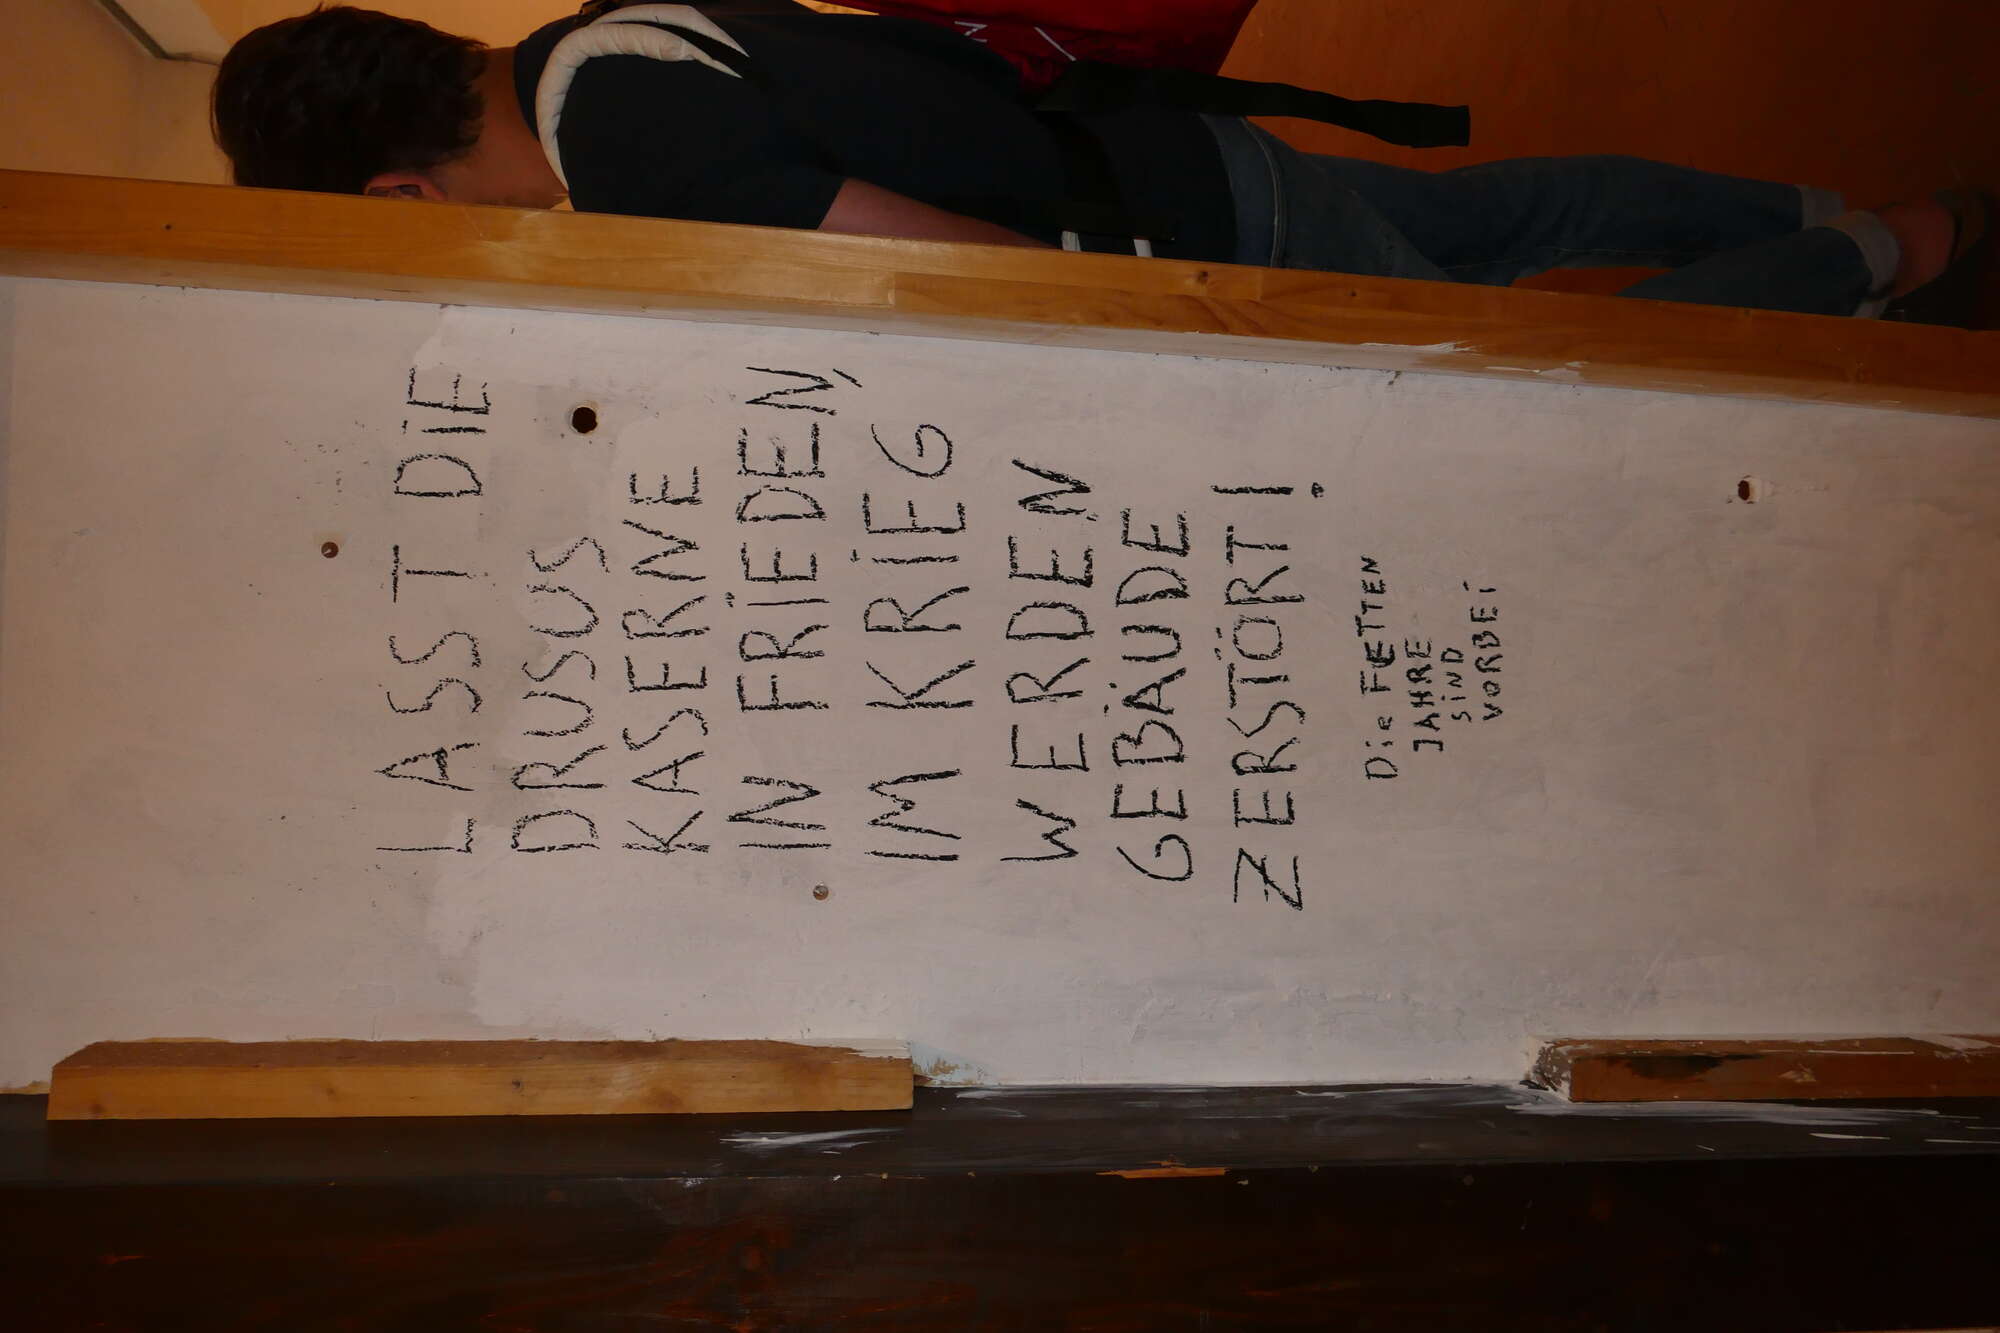 LASST DiE
DRUSUS
KASERNE
IN FRiEDEN,
IM KRiEG
WERDEN
GEBÄUDE
ZERSTÖRT!
Die FETTEN
JAHRE
SiND
VORBEi